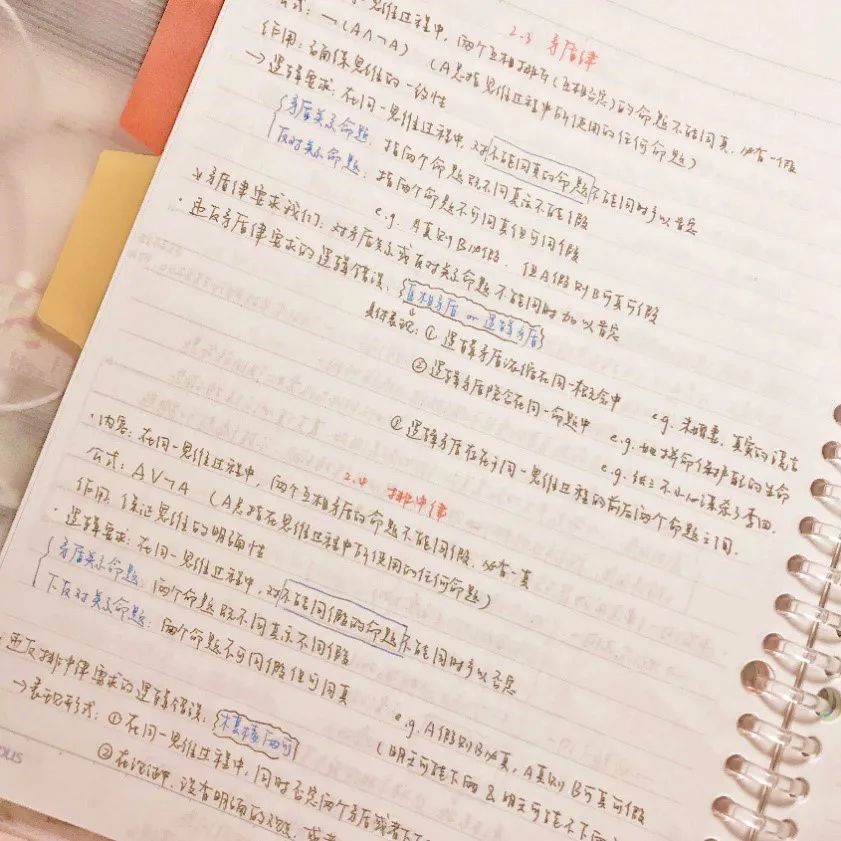 2.3 矛盾律
思维过程中，两个互相排斥(互相否定)的命题不能同真，必有一假
公式：¬(A∧¬A) (A总指思维过程中所使用的任何命题)
作用：确保思维的一致性
→逻辑要求：在同一思维过程中，对不能同真的命题不能同时予以肯定
矛盾关系命题：指两个命题既不同真亦不能假
反对关系命题：指两个命题不可同真但可同假
e.g. A真则B必假，但A假则B可真可假
矛盾律要求我们：对矛盾关系或反对关系命题不能同时加以肯定
·违反矛盾律要求的逻辑错误：自相矛盾 or 逻辑矛盾
具体表现：①逻辑矛盾浓缩在同一概念中 e.g. 真实的谎言
②逻辑矛盾隐含在同一命题中 e.g. 她拼命保护自己的生命
②逻辑矛盾存在于同一思维过程的前后两个命题之间. e.g. 不小心谋杀了李四.
2.4 排中律
·内容：在同一思维过程中，两个互相矛盾的命题不能同假，必有一真
公式：A∨¬A (A总指在思维过程中所使用的任何命题)
作用：保证思维的明确性
·逻辑要求：在同一思维过程中，对不能同假的命题不能同时予以否定
矛盾关系命题：两个命题既不同真亦不同假
下反对关系命题：两个命题不可同假但可同真
e.g. A假则B必真，A真则B可真可假
(明天可能下雨 & 明天可能不下雨
违反排中律要求的逻辑错误：模棱两可
→表现形式：①在同一思维过程中，同时否定两个矛盾或者下
②在论证中，没有明确的观点，或者